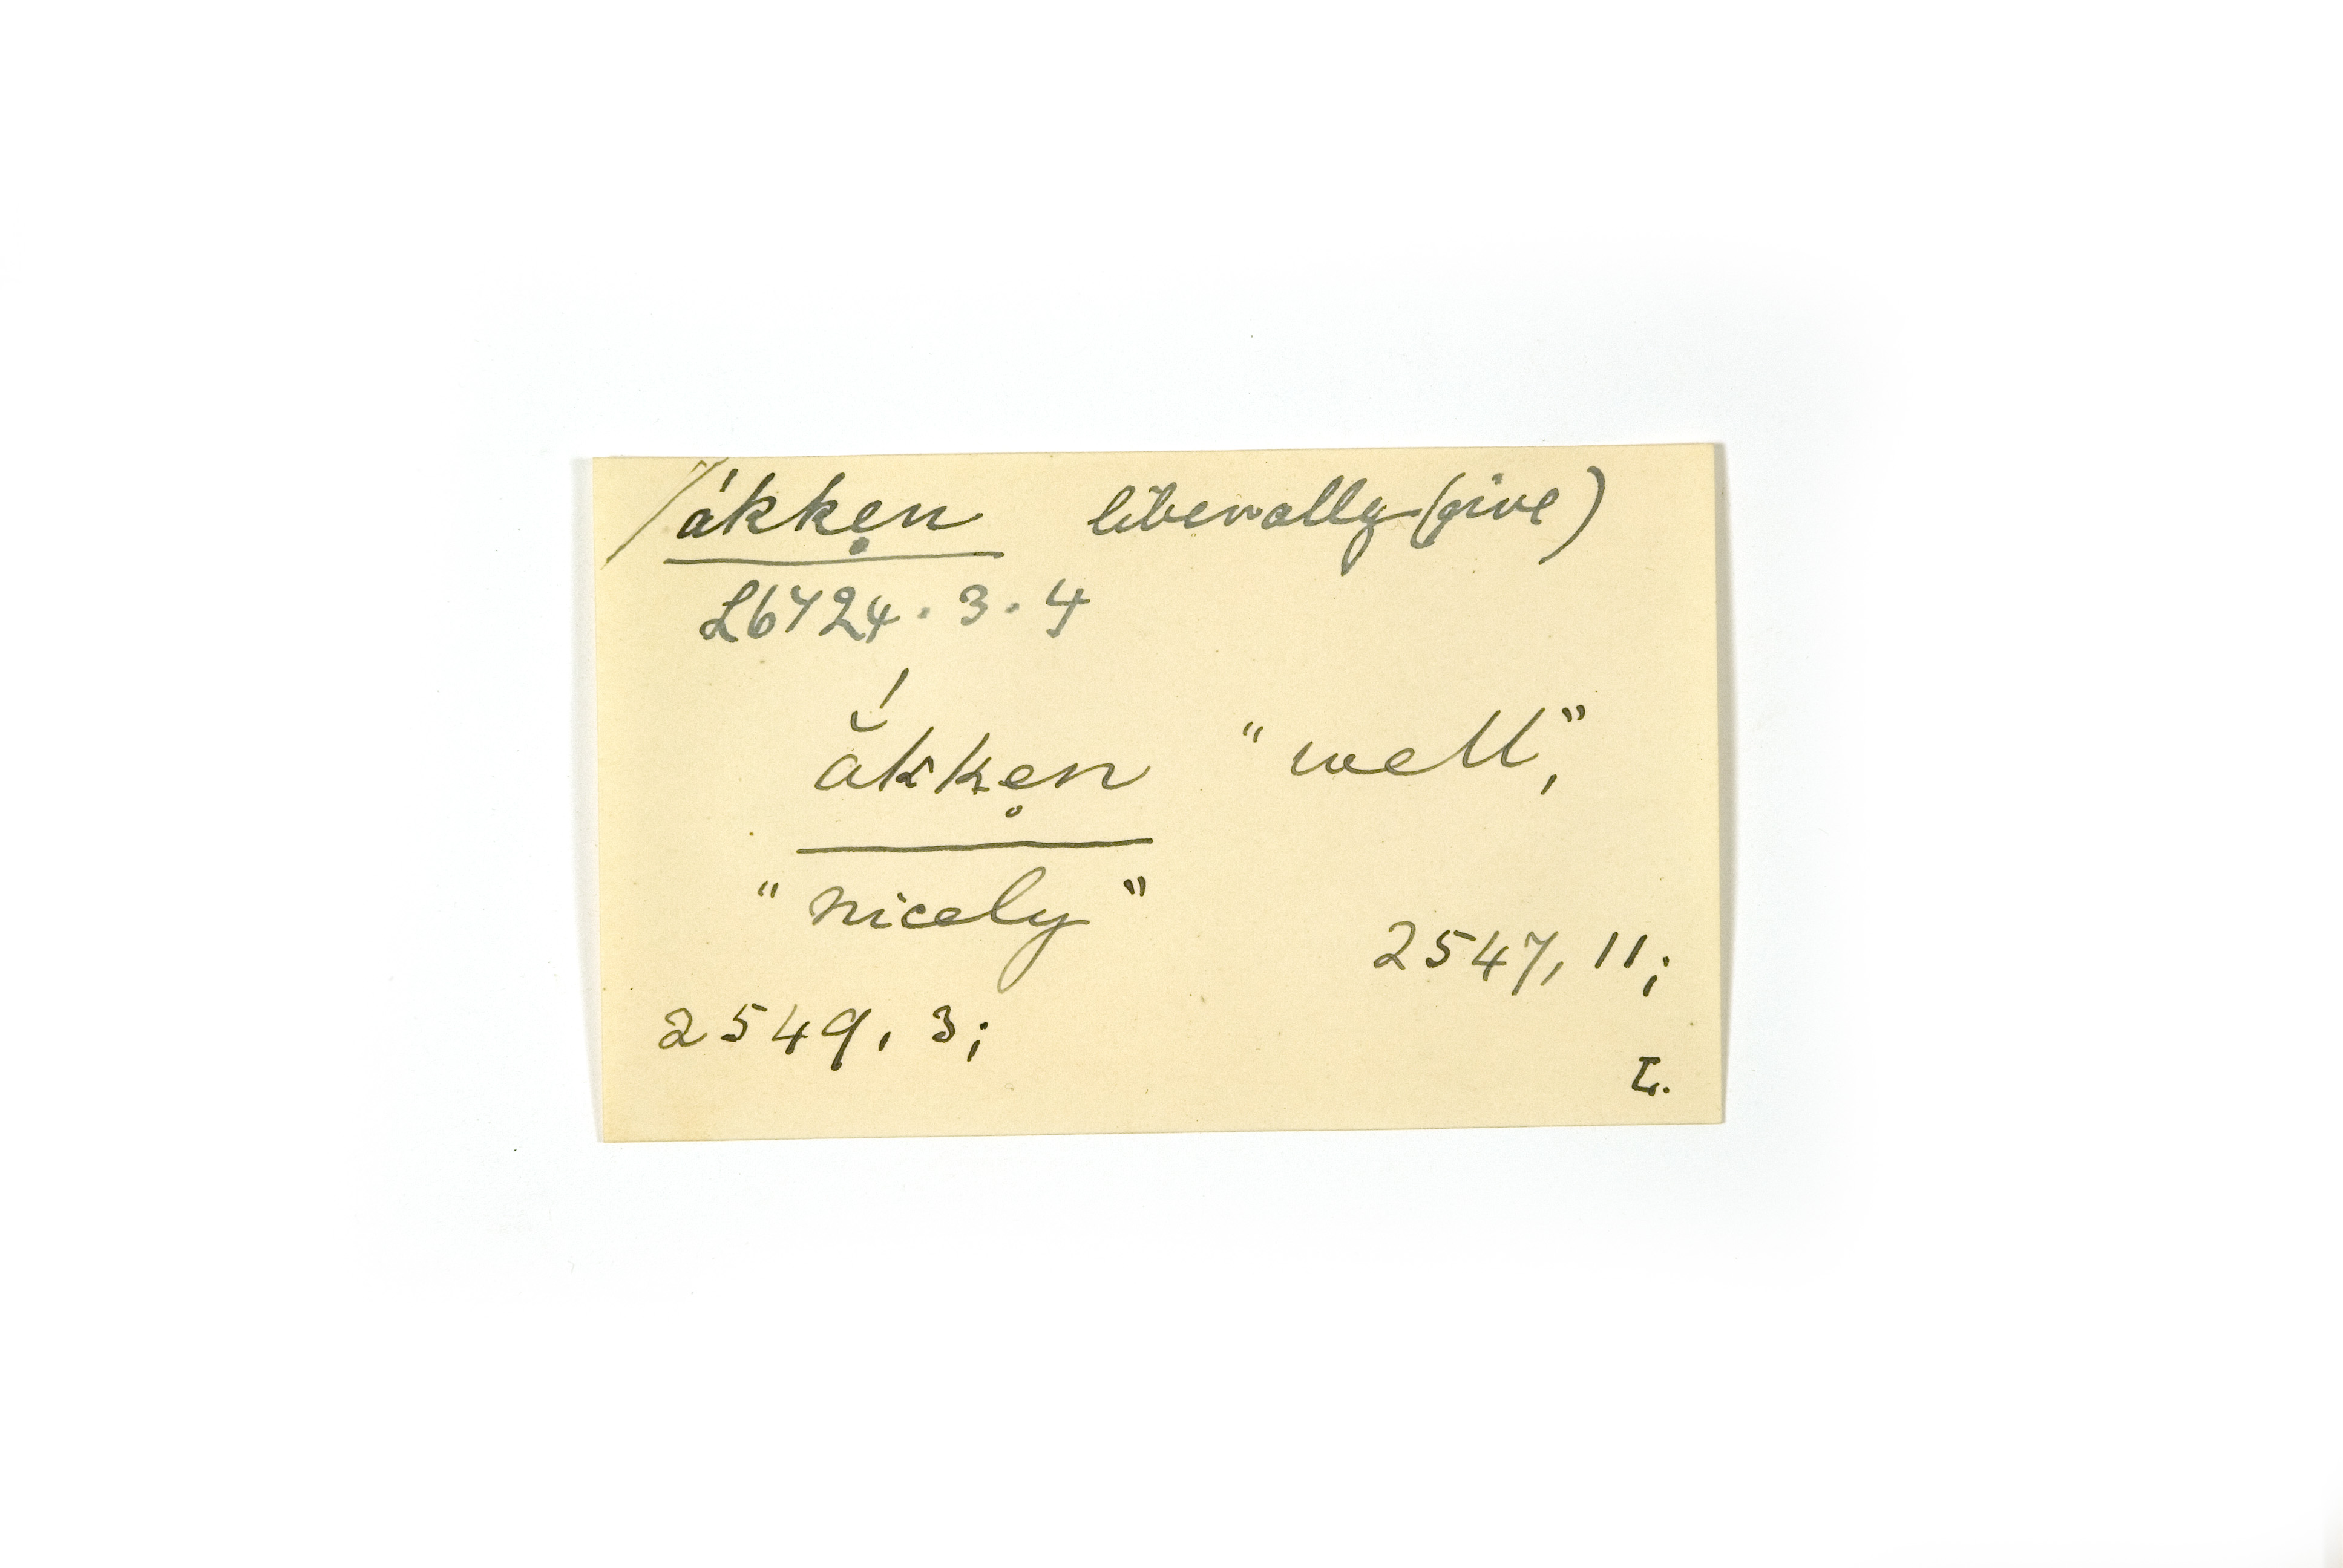 / ákke̥n liberally (give)
L6724.3.4
ắkke̥n "well",
"nicely"
2547, 11;
2549, 3;
L.